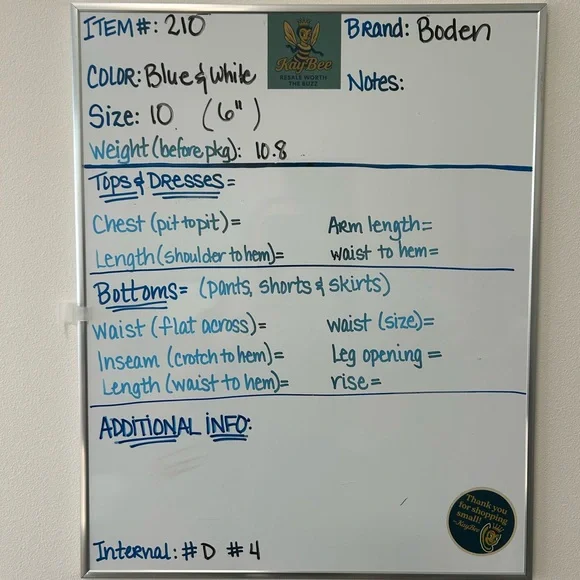 ITEM#: 210
Brand: Boden
KayBee
RESALE WORTH
THE BUZZ
COLOR: Blue & White
Notes:
Size: 10 (6")
Weight (before pkg): 10.8
TOPS & DRESSES=
Chest (pit to pit)=
Arm length=
Length (shoulder to hem)=
waist to hem=
Bottoms= (pants, shorts & skirts)
Waist (flat across)=
waist (size)=
Inseam (crotch to hem)=
Leg opening =
Length (waist to hem)=
rise=
ADDITIONAL INFO:
Thank you
for shopping
small!
~KayBee
Internal: #D #4